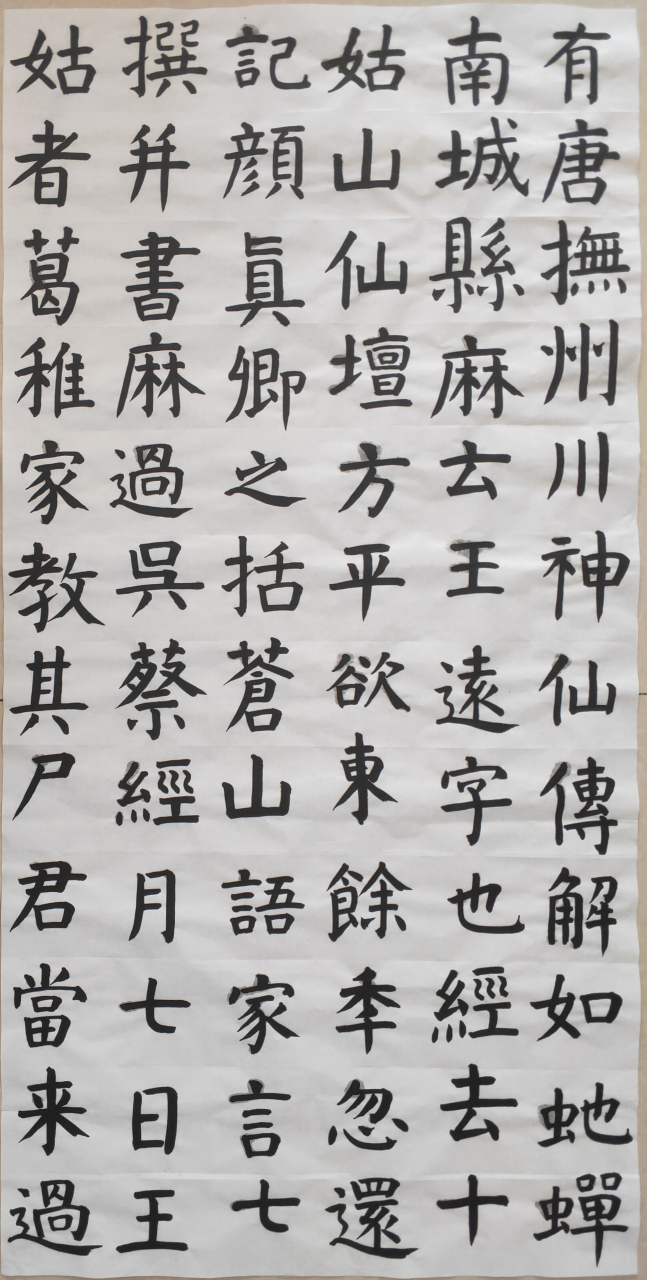 有唐撫州川神仙傳解如虵蟬
南城縣麻云王遠字也經去十
姑山仙壇方平欲東餘秊忽還
記顔眞卿之括蒼山語家言七
撰并書麻過吳蔡經月七日王
姑者葛稚家教其尸君當来過